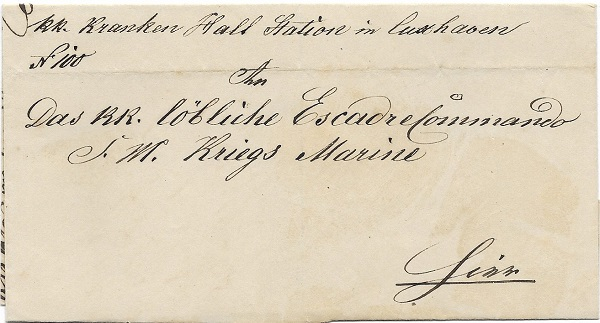 kk. Kranken Halt Station in Cuxhaven
N 100
An
Das kk. löbliche Escadre Commando
S. M. Kriegs Marine
Hier